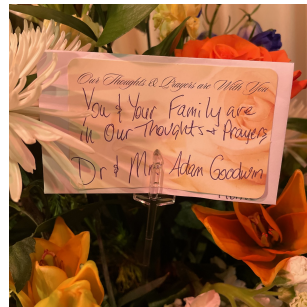 Our Thoughts & Prayers are With You
You & Your Family are
in Our Thoughts & Prayers
Dr & Mrs Adam Goodwin